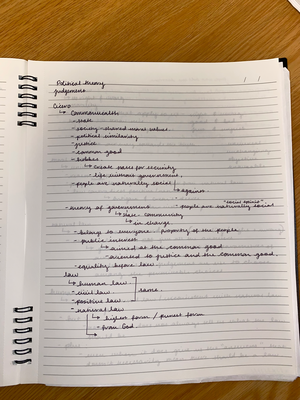 Political theory
judgement
Cicero
↳ Commonwealth
- state
- society - shared moral values
- political similarity
- justice
- common good
- hobbes
↳ create state for security
- life without government.
- people are naturally social
↳ against
"social beings"
- theory of government - people are naturally social
↳ state - community
↳ in charge
- belongs to everyone - property of the people
- public interest
↳ aimed at the common good
- oriented to justice and the common good.
- equality before law
law
↳ human law
- civil law same
- positive law
- natural law
↳ highest form / purest form
- from God.